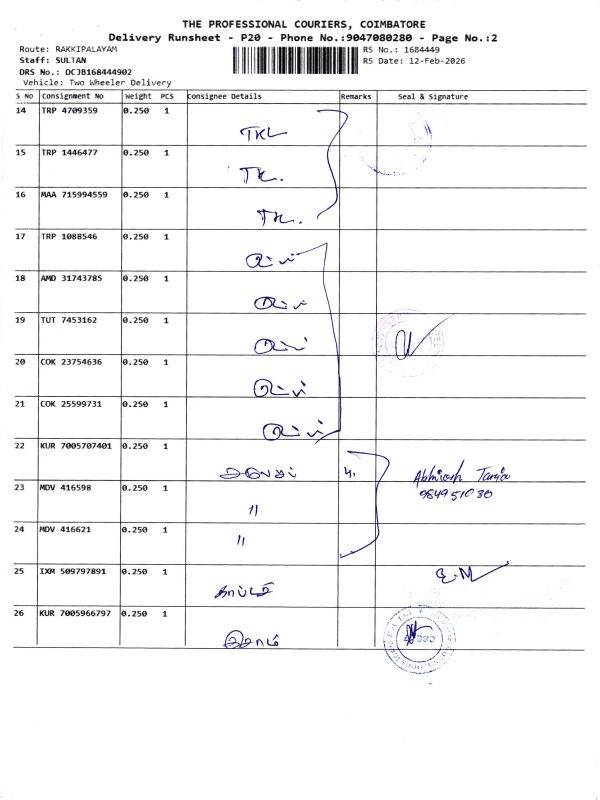 THE PROFESSIONAL COURIERS, COIMBATORE
Delivery Runsheet - P20 - Phone No.:9047080280 - Page No.:2
Route: RAKKIPALAYAM
RS No.: 1684449
Staff: SULTAN
RS Date: 12-Feb-2026
DRS No.: DCJB168444902
Vehicle: Two Wheeler Delivery
S No Consignment No Weight PCS Consignee Details Remarks Seal & Signature
14 TRP 4709359 0.250 1
TKL
15 TRP 1446477 0.250 1
TK.
16 MAA 715994559 0.250 1
TK.
17 TRP 1088546 0.250 1
18 AMD 31743785 0.250 1
19 TUT 7453162 0.250 1
20 COK 23754636 0.250 1
21 COK 25599731 0.250 1
22 KUR 7005707401 0.250 1
23 MDV 416598 0.250 1
"
24 MDV 416621 0.250 1
"
25 IXM 509797891 0.250 1
26 KUR 7005966797 0.250 1